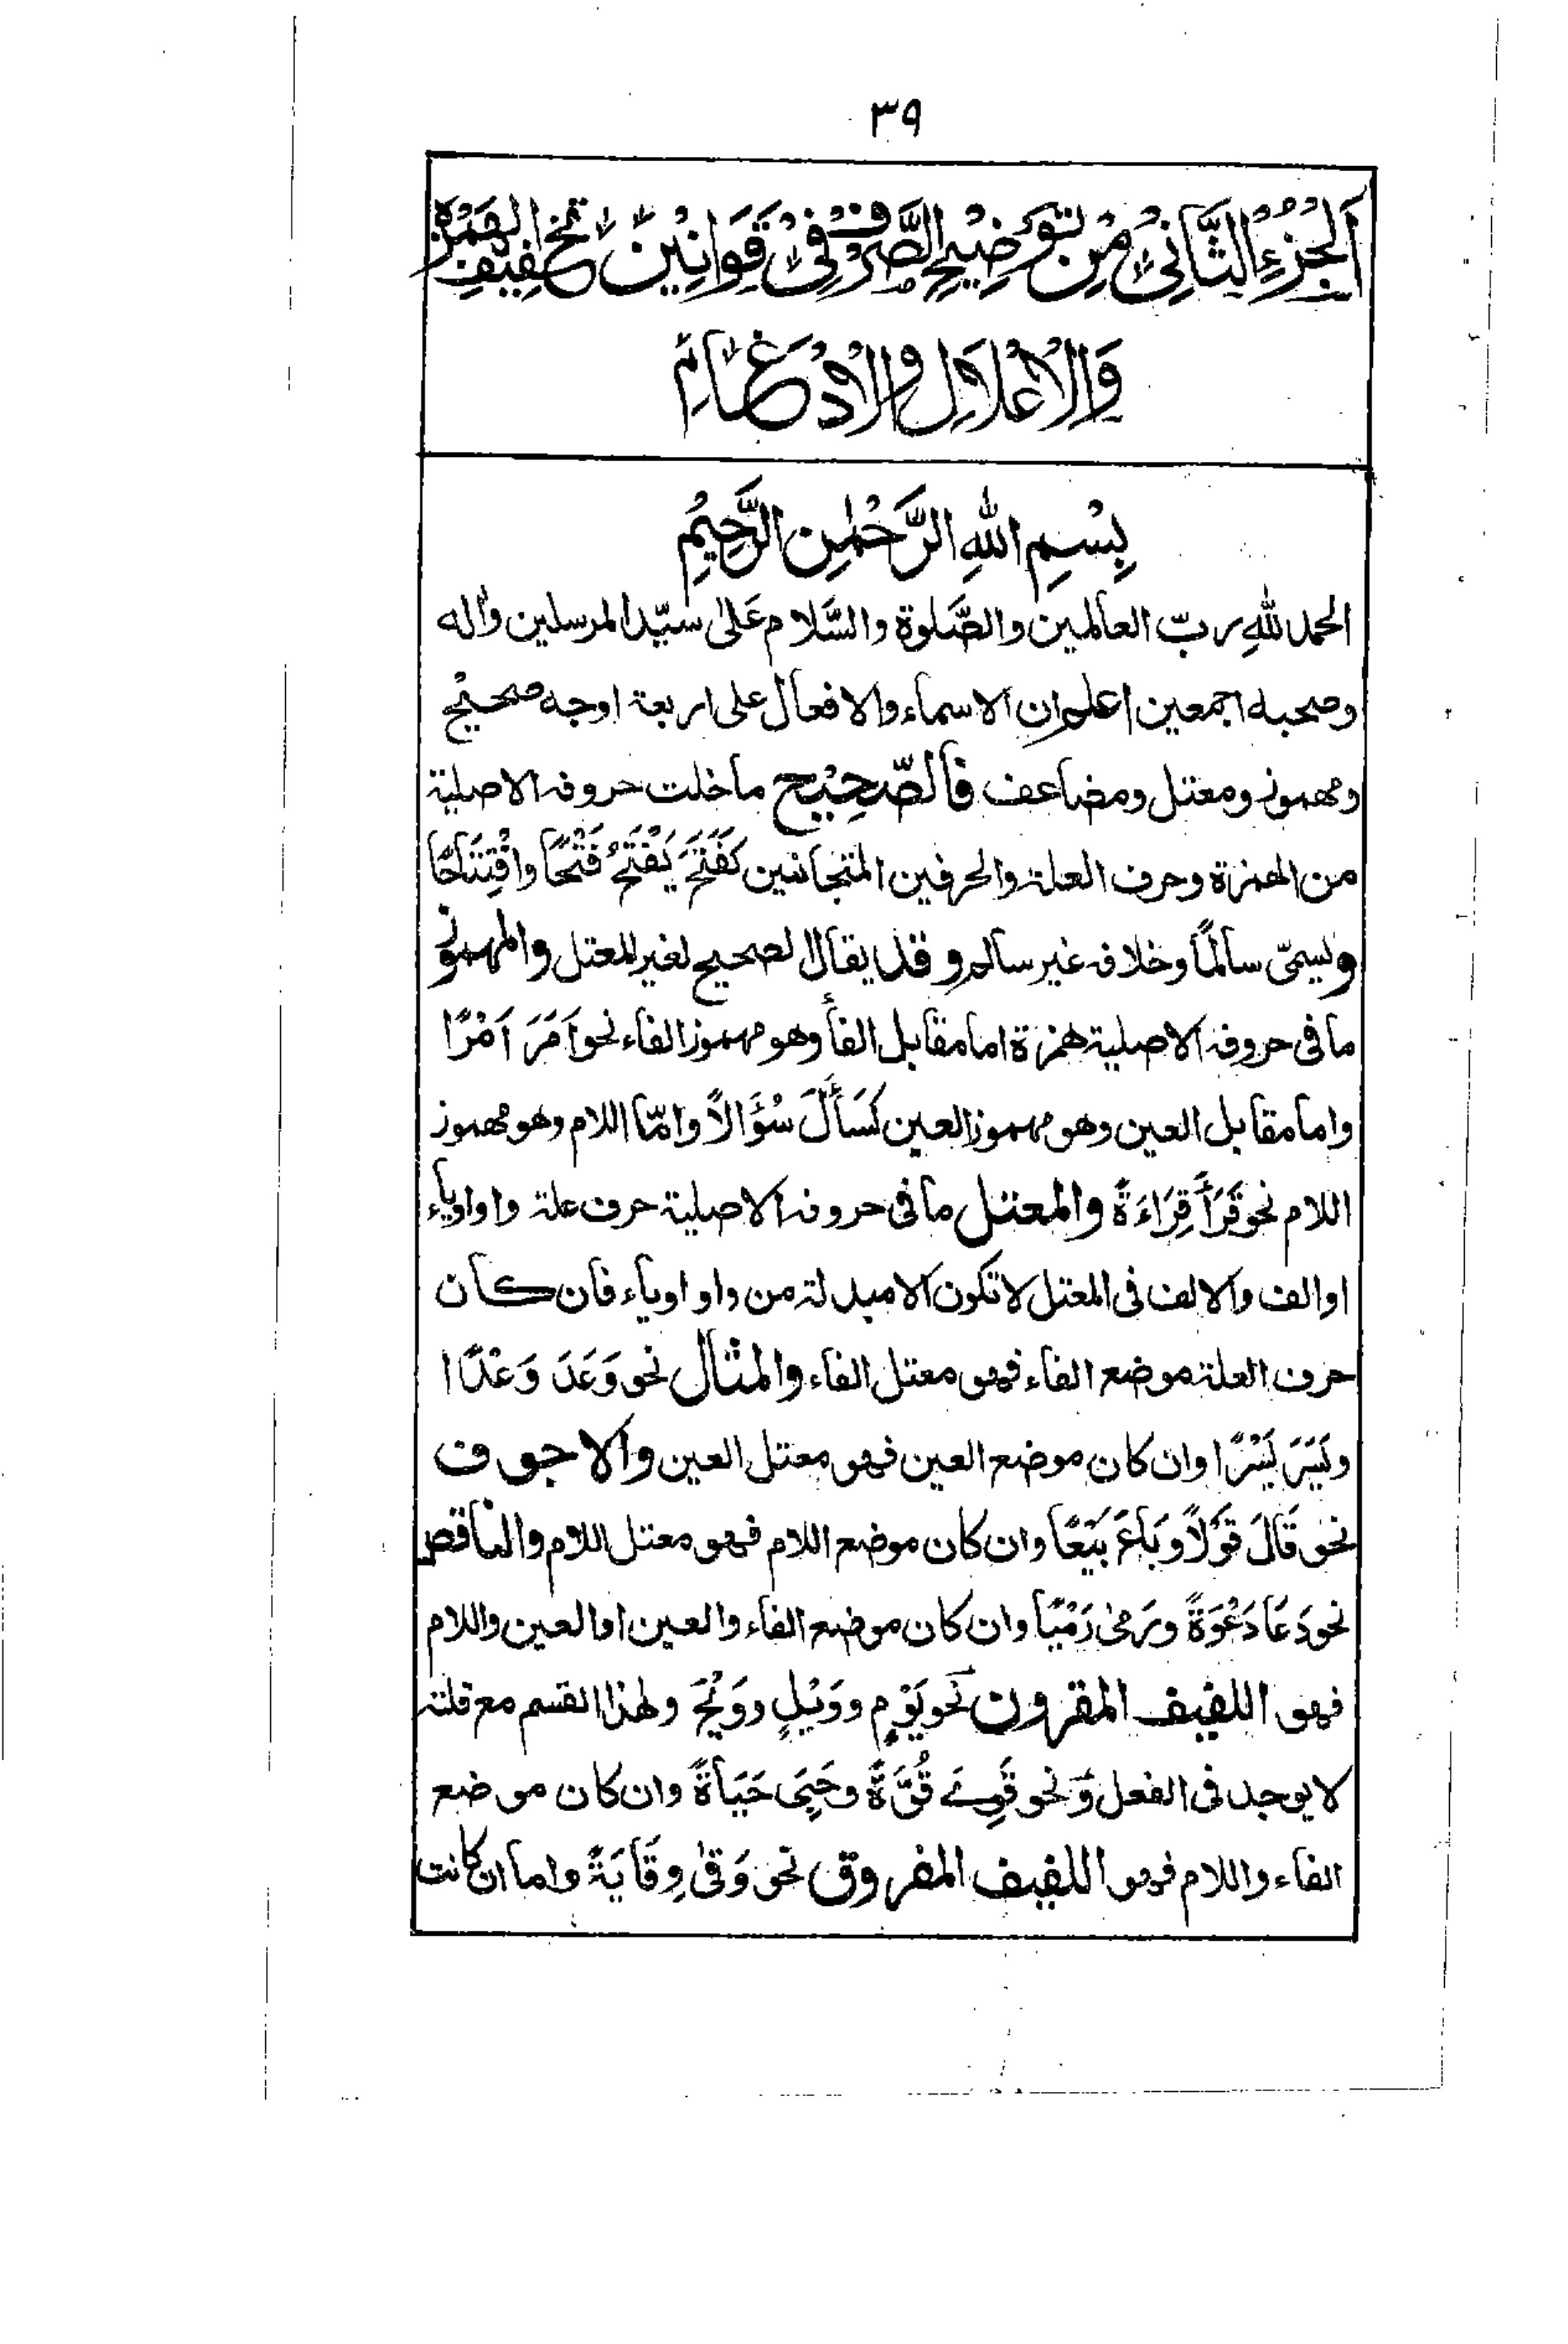 ٣٩
اَلْجُزْءُ الثَّانِيْ مِنْ تَوْضِيْحِ الصَّرْفِ فِيْ قَوَانِيْنِ تَخْفِيْفِ الْهَمْزَةِ
وَالْاِعْلَالِ وَالْاِدْغَامِ
بِسْمِ اللهِ الرَّحْمٰنِ الرَّحِيْمِ
الحمد للهِ ربّ العالمين والصَّلوة والسَّلام عَلىٰ سيّد المرسلين واٰله
وصحبه اجمعين اعلم ان الاسماء والافعال على اربعة اوجه صحيح
ومهموز ومعتل ومضاعف فالصّحِيْح ما خلت حروفه الاصلية
من الهمزة وحرف العلة والحرفين المتجانسين كَفَتَحَ يَفْتَحُ فَتْحًا وافْتِتَاحًا
ويسمىّ سالمًا وخلافه غير سالم وقد يقال الصحيح لغير المعتل والمهموز
ما فى حروفه الاصلية همزة اما مقابل الفأ وهو مهموز الفاء نحو اَمَرَ اَمْرًا
واما مقابل العين وهو مهموز العين كَسَأَلَ سُؤَالًا وامّا اللام وهو مهموز
اللام نحو قَرَأَ قِرَاءَةً والمعتل ما فى حروفه الاصلية حرف علة واو اوياء
او الف والالف فى المعتل لا تكون الا مبدلة من واو اوياء فان كان
حرف العلة موضع الفاء فهو معتل الفاء والمثال نحو وَعَدَ وَعْدًا
ويَسَرَ يَسْرًا وان كان موضع العين فهو معتل العين والاجوف
نحو قَالَ قَوْلًا وبَاعَ بَيْعًا وان كان موضع اللام فهو معتل اللام والناقص
نحو دَعَا دَعْوَةً ورَمىٰ رَمْيًا وان كان موضع الفاء والعين او العين واللام
فهو اللفيف المقرون نحو يَوْمٍ ووَيْلٍ ووَيْحَ ولهذا القسم مع قلته
لا يوجد فى الفعل وَنحو قَوِىَ قُوَّةً وحَيِىَ حَيَاةً وان كان موضع
الفاء واللام فهو اللفيف المفروق نحو وَقىٰ وِقَايَةً واما ان كانت